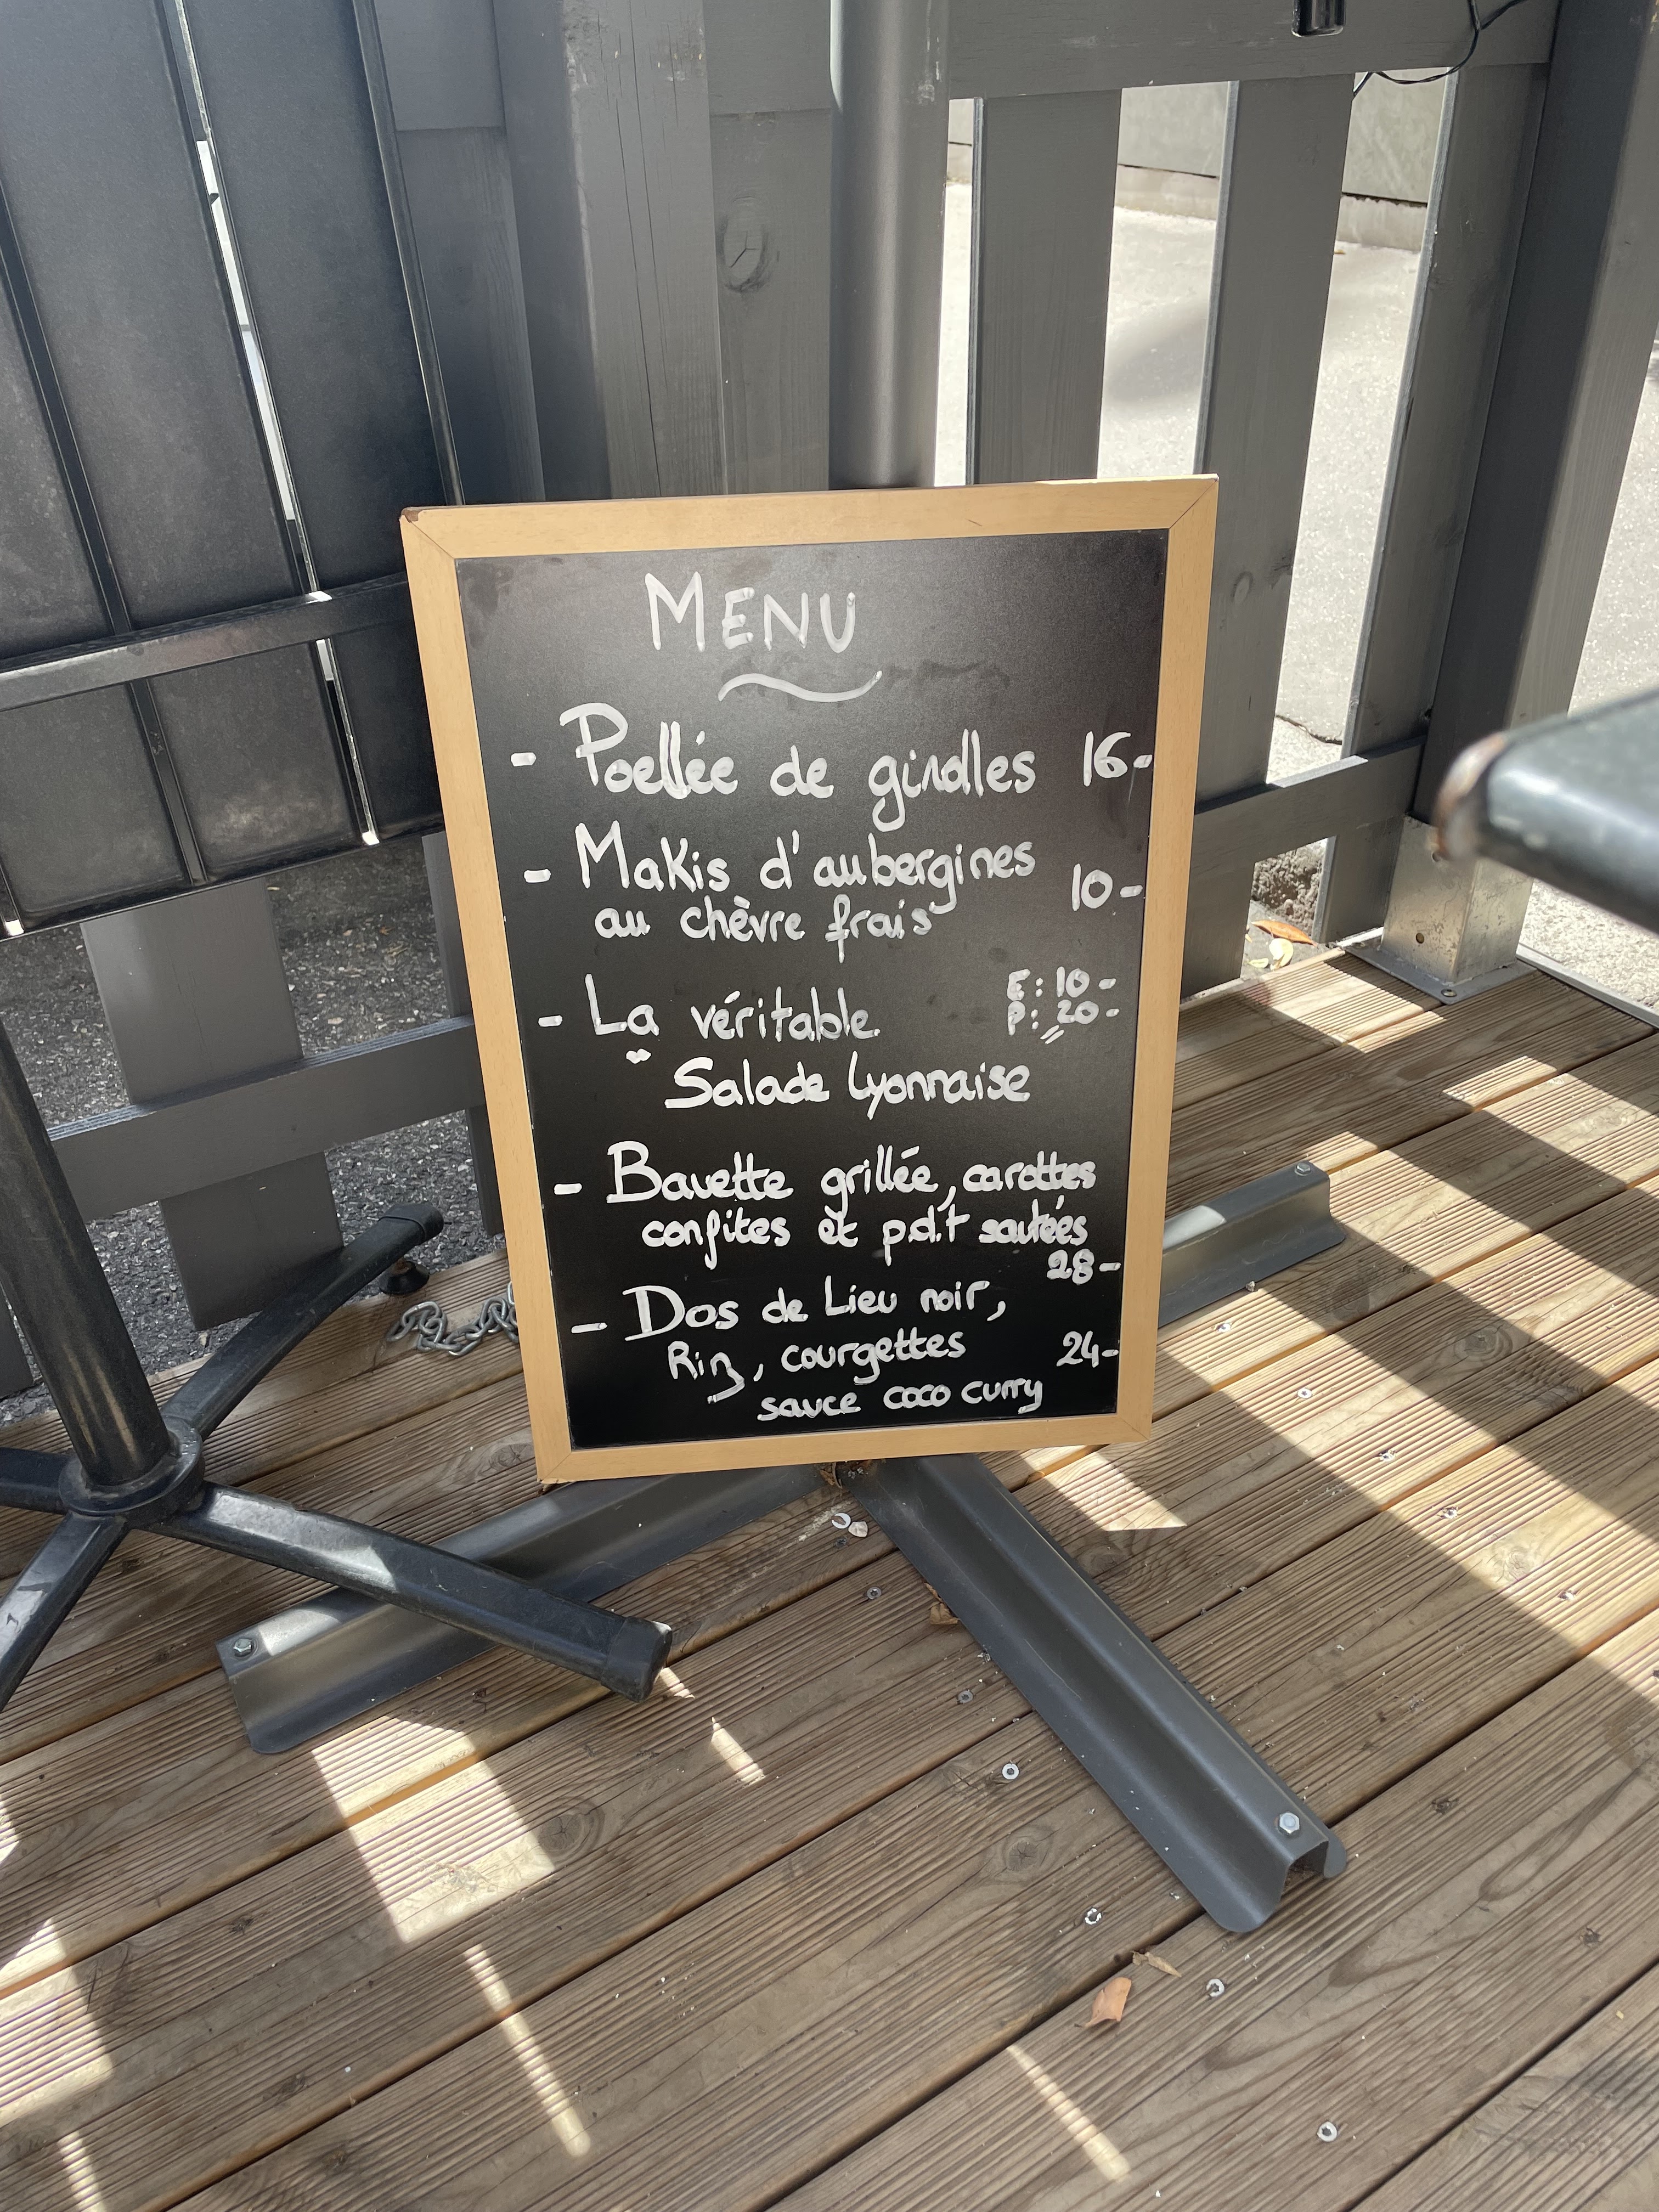 MENU
- Poellée de girolles 16-
- Makis d'aubergines
au chèvre frais 10-
- La véritable E: 10-
P: 20-
Salade Lyonnaise
- Bavette grillée, carottes
confites et p.d.t sautées
28-
- Dos de Lieu noir,
Riz, courgettes 24-
sauce coco curry